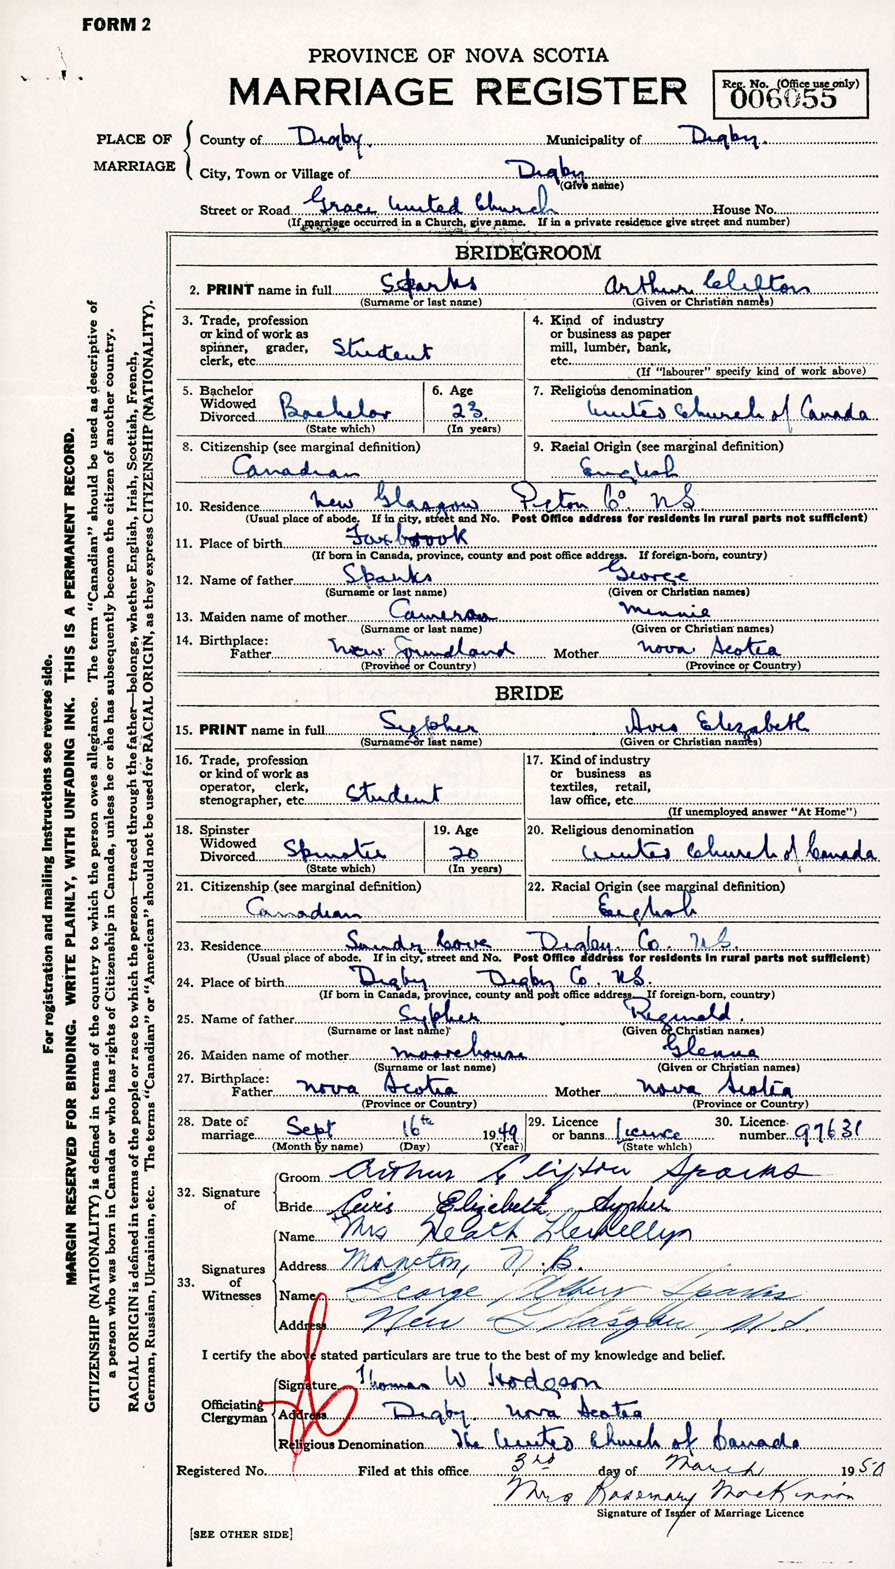 FORM 2
PROVINCE OF NOVA SCOTIA
MARRIAGE REGISTER
Reg. No. (Office use only)
006055
PLACE OF MARRIAGE
County of Digby. Municipality of Digby.
City, Town or Village of Digby
(Give name)
Street or Road Grace United Church House No.
(If marriage occurred in a Church, give name. If in a private residence give street and number)
BRIDEGROOM
2. PRINT name in full Sparks Arthur Clifton
(Surname or last name) (Given or Christian names)
3. Trade, profession or kind of work as spinner, grader, clerk, etc. Student
4. Kind of industry or business as paper mill, lumber, bank, etc.
(If "labourer" specify kind of work above)
5. Bachelor Widowed Divorced Bachelor
(State which)
6. Age 23
(In years)
7. Religious denomination United Church of Canada
8. Citizenship (see marginal definition) Canadian
9. Racial Origin (see marginal definition) English
10. Residence New Glasgow Pictou Co NS
(Usual place of abode. If in city, street and No. Post Office address for residents in rural parts not sufficient)
11. Place of birth Foxbrook
(If born in Canada, province, county and post office address. If foreign-born, country)
12. Name of father Sparks George
(Surname or last name) (Given or Christian names)
13. Maiden name of mother Cameron Minnie
(Surname or last name) (Given or Christian names)
14. Birthplace: Father New Foundland Mother Nova Scotia
(Province or Country) (Province or Country)
BRIDE
15. PRINT name in full Sypher Avis Elizabeth
(Surname or last name) (Given or Christian names)
16. Trade, profession or kind of work as operator, clerk, stenographer, etc. Student
17. Kind of industry or business as textiles, retail, law office, etc.
(If unemployed answer "At Home")
18. Spinster Widowed Divorced Spinster
(State which)
19. Age 20
(In years)
20. Religious denomination United Church of Canada
21. Citizenship (see marginal definition) Canadian
22. Racial Origin (see marginal definition) English
23. Residence Sandy Cove Digby Co. N.S.
(Usual place of abode. If in city, street and No. Post Office address for residents in rural parts not sufficient)
24. Place of birth Digby Digby Co. N.S.
(If born in Canada, province, county and post office address. If foreign-born, country)
25. Name of father Sypher Reginald.
(Surname or last name) (Given or Christian names)
26. Maiden name of mother Moorehouse Glenna
(Surname or last name) (Given or Christian names)
27. Birthplace: Father Nova Scotia Mother Nova Scotia
(Province or Country) (Province or Country)
28. Date of marriage Sept 16th 1949
(Month by name) (Day) (Year)
29. Licence or banns Licence
(State which)
30. Licence number 97631
32. Signature of
Groom Arthur Clifton Sparks
Bride Avis Elizabeth Sypher
33. Signatures of Witnesses
Name Mrs Heath Llewellyn
Address Moncton, N.B.
Name George Sparks
Address New Glasgow, N.S.
I certify the above stated particulars are true to the best of my knowledge and belief.
Officiating Clergyman
Signature Thomas W Hodgson
Address Digby Nova Scotia
Religious Denomination The United Church of Canada
Registered No. Filed at this office 3rd day of March 1950
Mrs Rosemary MacKinnon
Signature of Issuer of Marriage Licence
[SEE OTHER SIDE]
For registration and mailing instructions see reverse side.
MARGIN RESERVED FOR BINDING. WRITE PLAINLY, WITH UNFADING INK. THIS IS A PERMANENT RECORD.
CITIZENSHIP (NATIONALITY) is defined in terms of the country to which the person owes allegiance. The term "Canadian" should be used as descriptive of
a person who was born in Canada or who has rights of Citizenship in Canada, unless he or she has subsequently become the citizen of another country.
RACIAL ORIGIN is defined in terms of the people or race to which the person—traced through the father—belongs, whether English, Irish, Scottish, French,
German, Russian, Ukrainian, etc. The terms "Canadian" or "American" should not be used for RACIAL ORIGIN, as they express CITIZENSHIP (NATIONALITY).